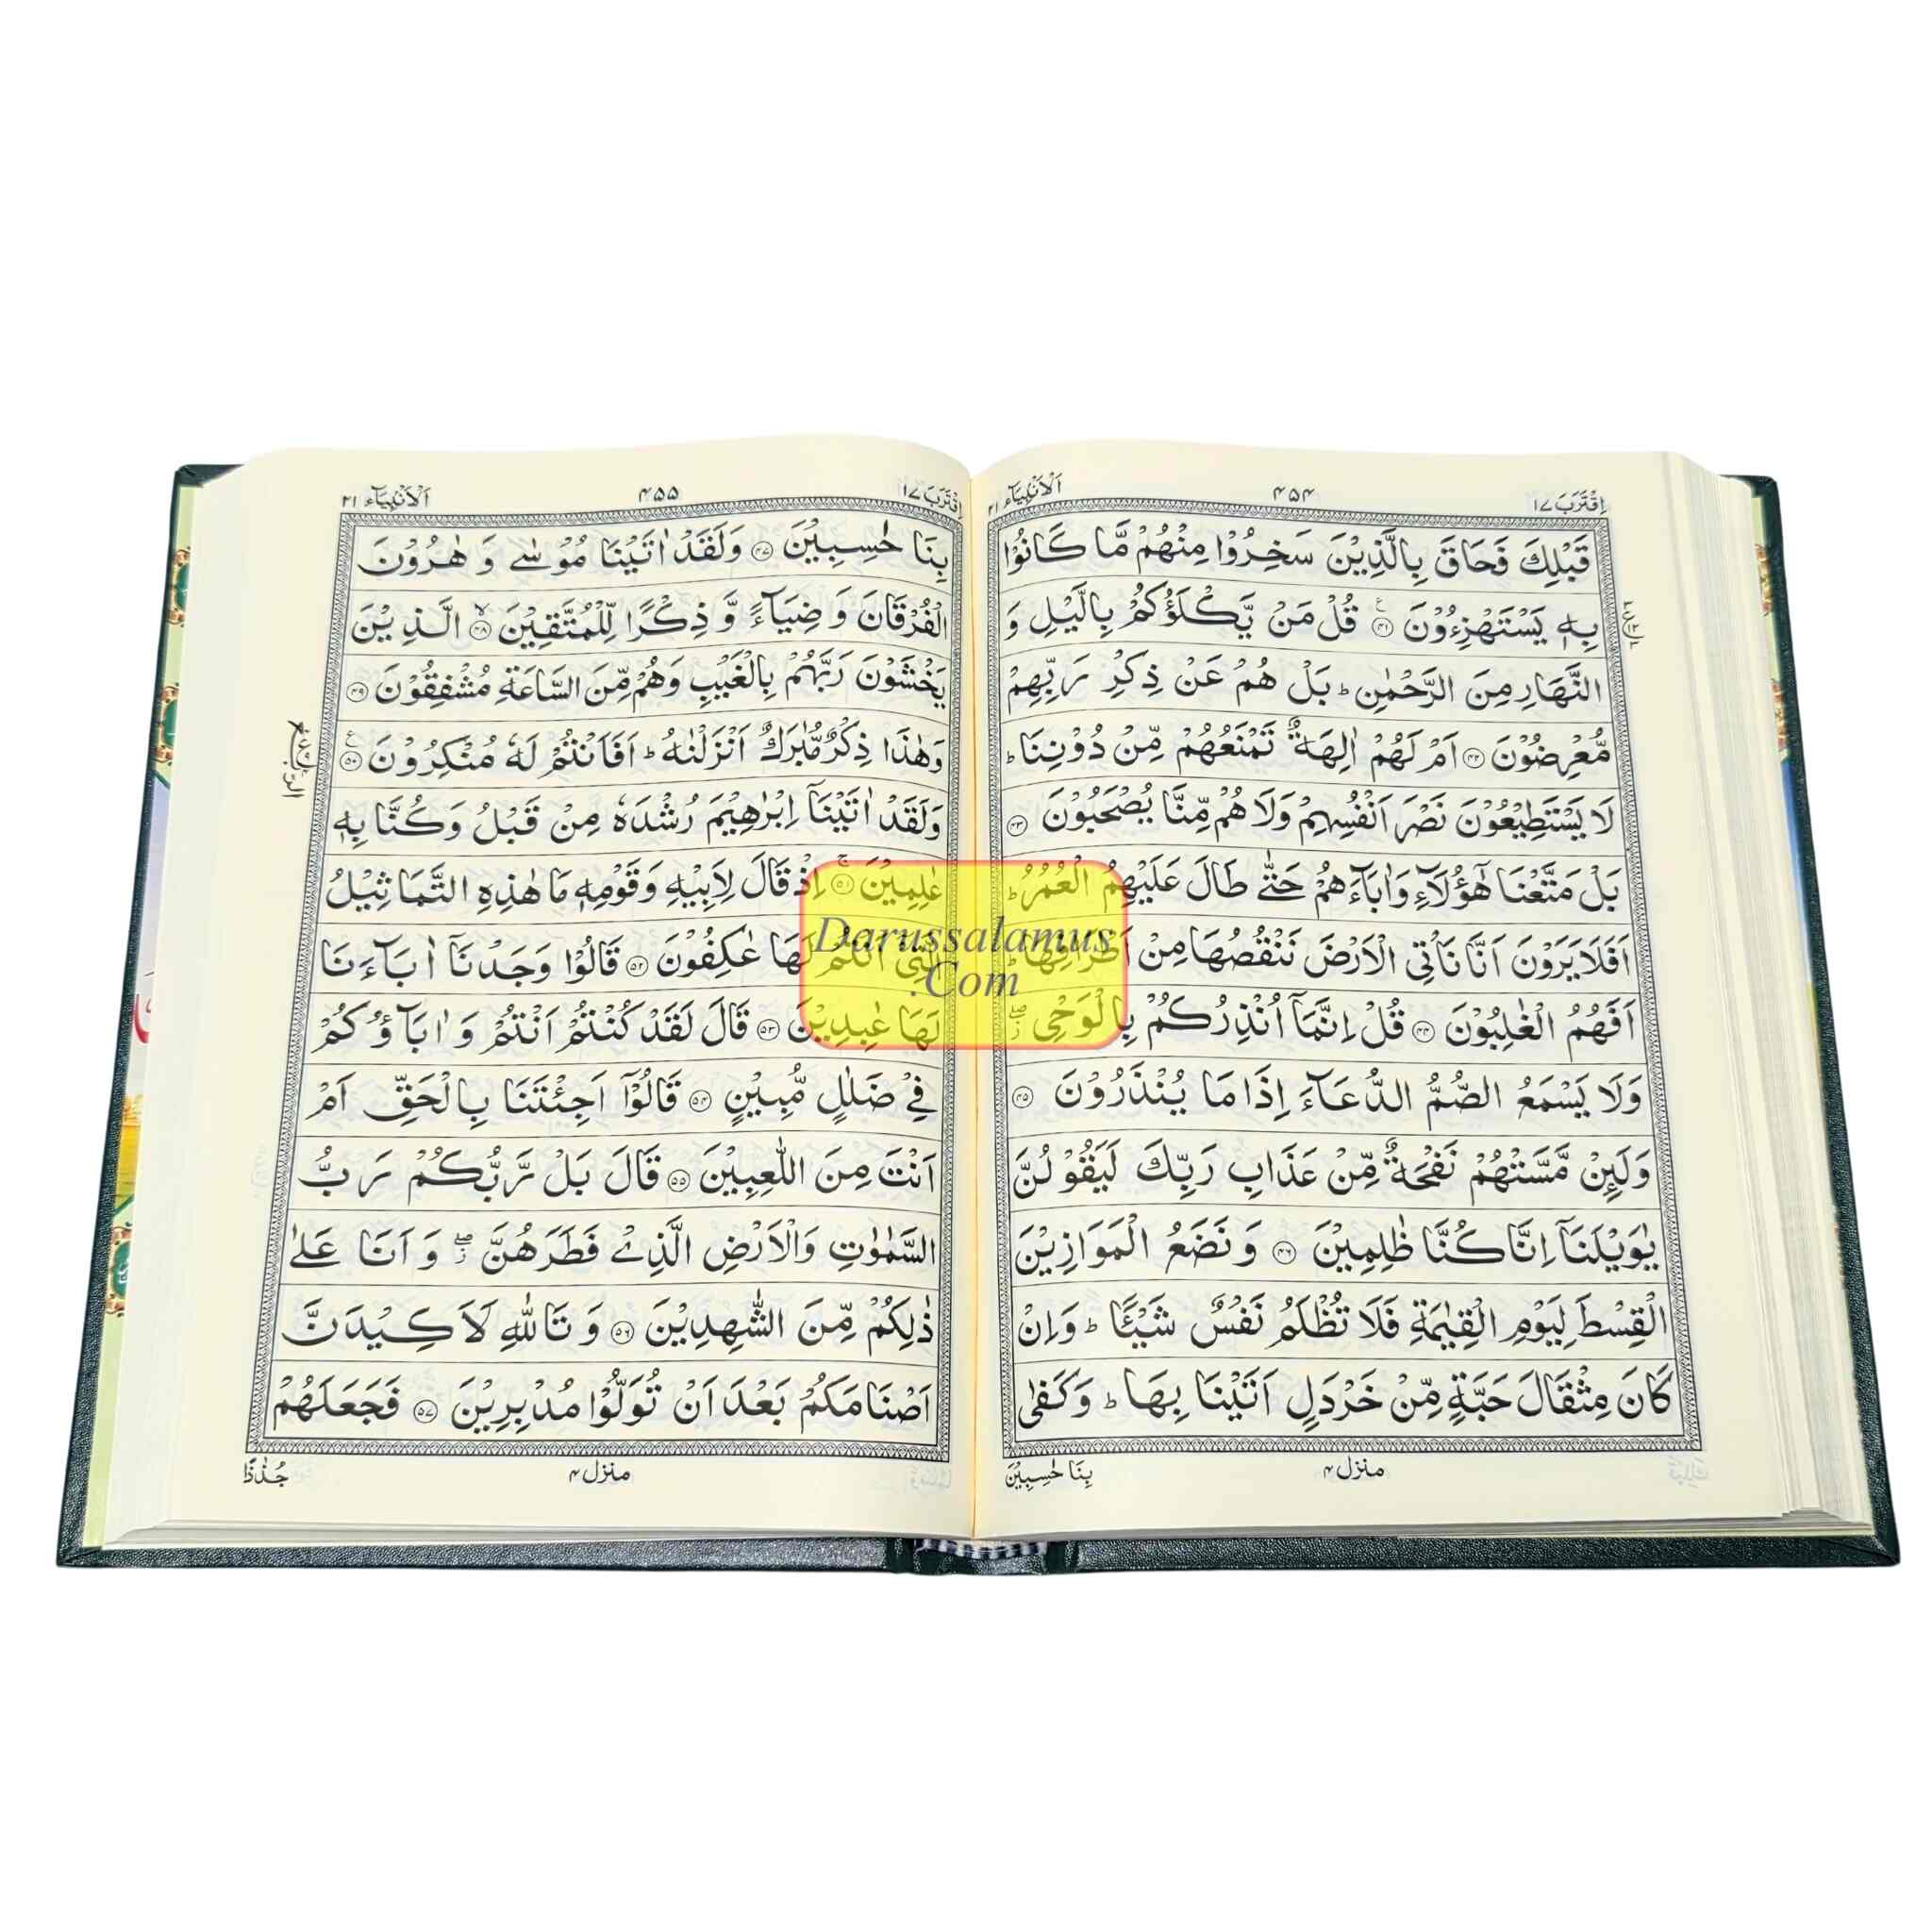 اِقْتَرَبَ ١٧
٤٥٤
اَلْاَنْۢبِيَآء ٢١
قَبْلِكَ فَحَاقَ بِالَّذِيْنَ سَخِرُوْا مِنْهُمْ مَّا كَانُوْا
بِهٖ يَسْتَهْزِءُوْنَ ۝٤١ قُلْ مَنْ يَّكْلَؤُكُمْ بِالَّيْلِ وَ
النَّهَارِ مِنَ الرَّحْمٰنِ ؕ بَلْ هُمْ عَنْ ذِكْرِ رَبِّهِمْ
مُّعْرِضُوْنَ ۝٤٢ اَمْ لَهُمْ اٰلِهَةٌ تَمْنَعُهُمْ مِّنْ دُوْنِنَا ؕ
لَا يَسْتَطِيْعُوْنَ نَصْرَ اَنْفُسِهِمْ وَلَا هُمْ مِّنَّا يُصْحَبُوْنَ ۝٤٣
بَلْ مَتَّعْنَا هٰٓؤُلَآءِ وَاٰبَآءَهُمْ حَتّٰى طَالَ عَلَيْهِمُ الْعُمُرُ ؕ
اَفَلَا يَرَوْنَ اَنَّا نَاْتِى الْاَرْضَ نَنْقُصُهَا مِنْ اَطْرَافِهَا ؕ
اَفَهُمُ الْغٰلِبُوْنَ ۝٤٤ قُلْ اِنَّمَآ اُنْذِرُكُمْ بِالْوَحْىِ ۖ
وَلَا يَسْمَعُ الصُّمُّ الدُّعَآءَ اِذَا مَا يُنْذَرُوْنَ ۝٤٥
وَلَئِنْ مَّسَّتْهُمْ نَفْحَةٌ مِّنْ عَذَابِ رَبِّكَ لَيَقُوْلُنَّ
يٰوَيْلَنَآ اِنَّا كُنَّا ظٰلِمِيْنَ ۝٤٦ وَنَضَعُ الْمَوَازِيْنَ
الْقِسْطَ لِيَوْمِ الْقِيٰمَةِ فَلَا تُظْلَمُ نَفْسٌ شَيْـًٔا ؕ وَاِنْ
كَانَ مِثْقَالَ حَبَّةٍ مِّنْ خَرْدَلٍ اَتَيْنَا بِهَا ؕ وَكَفٰى
منزل ٤
بِنَا حٰسِبِيْنَ
اِقْتَرَبَ ١٧
٤٥٥
اَلْاَنْۢبِيَآء ٢١
بِنَا حٰسِبِيْنَ ۝٤٧ وَلَقَدْ اٰتَيْنَا مُوْسٰى وَ هٰرُوْنَ
الْفُرْقَانَ وَ ضِيَآءً وَّ ذِكْرًا لِّلْمُتَّقِيْنَ ۝٤٨ الَّذِيْنَ
يَخْشَوْنَ رَبَّهُمْ بِالْغَيْبِ وَهُمْ مِّنَ السَّاعَةِ مُشْفِقُوْنَ ۝٤٩
وَهٰذَا ذِكْرٌ مُّبٰرَكٌ اَنْزَلْنٰهُ ؕ اَفَاَنْتُمْ لَهٗ مُنْكِرُوْنَ ۝٥٠
وَلَقَدْ اٰتَيْنَآ اِبْرٰهِيْمَ رُشْدَهٗ مِنْ قَبْلُ وَكُنَّا بِهٖ
عٰلِمِيْنَ ۝٥١ اِذْ قَالَ لِاَبِيْهِ وَقَوْمِهٖ مَا هٰذِهِ التَّمَاثِيْلُ
الَّتِىْٓ اَنْتُمْ لَهَا عٰكِفُوْنَ ۝٥٢ قَالُوْا وَجَدْنَآ اٰبَآءَنَا
لَهَا عٰبِدِيْنَ ۝٥٣ قَالَ لَقَدْ كُنْتُمْ اَنْتُمْ وَاٰبَآؤُكُمْ
فِىْ ضَلٰلٍ مُّبِيْنٍ ۝٥٤ قَالُوْٓا اَجِئْتَنَا بِالْحَقِّ اَمْ
اَنْتَ مِنَ اللّٰعِبِيْنَ ۝٥٥ قَالَ بَلْ رَّبُّكُمْ رَبُّ
السَّمٰوٰتِ وَالْاَرْضِ الَّذِىْ فَطَرَهُنَّ ۖ وَ اَنَا عَلٰى
ذٰلِكُمْ مِّنَ الشّٰهِدِيْنَ ۝٥٦ وَ تَاللّٰهِ لَاَكِيْدَنَّ
اَصْنَامَكُمْ بَعْدَ اَنْ تُوَلُّوْا مُدْبِرِيْنَ ۝٥٧ فَجَعَلَهُمْ
منزل ٤
جُذٰذًا
Darussalamus
.Com